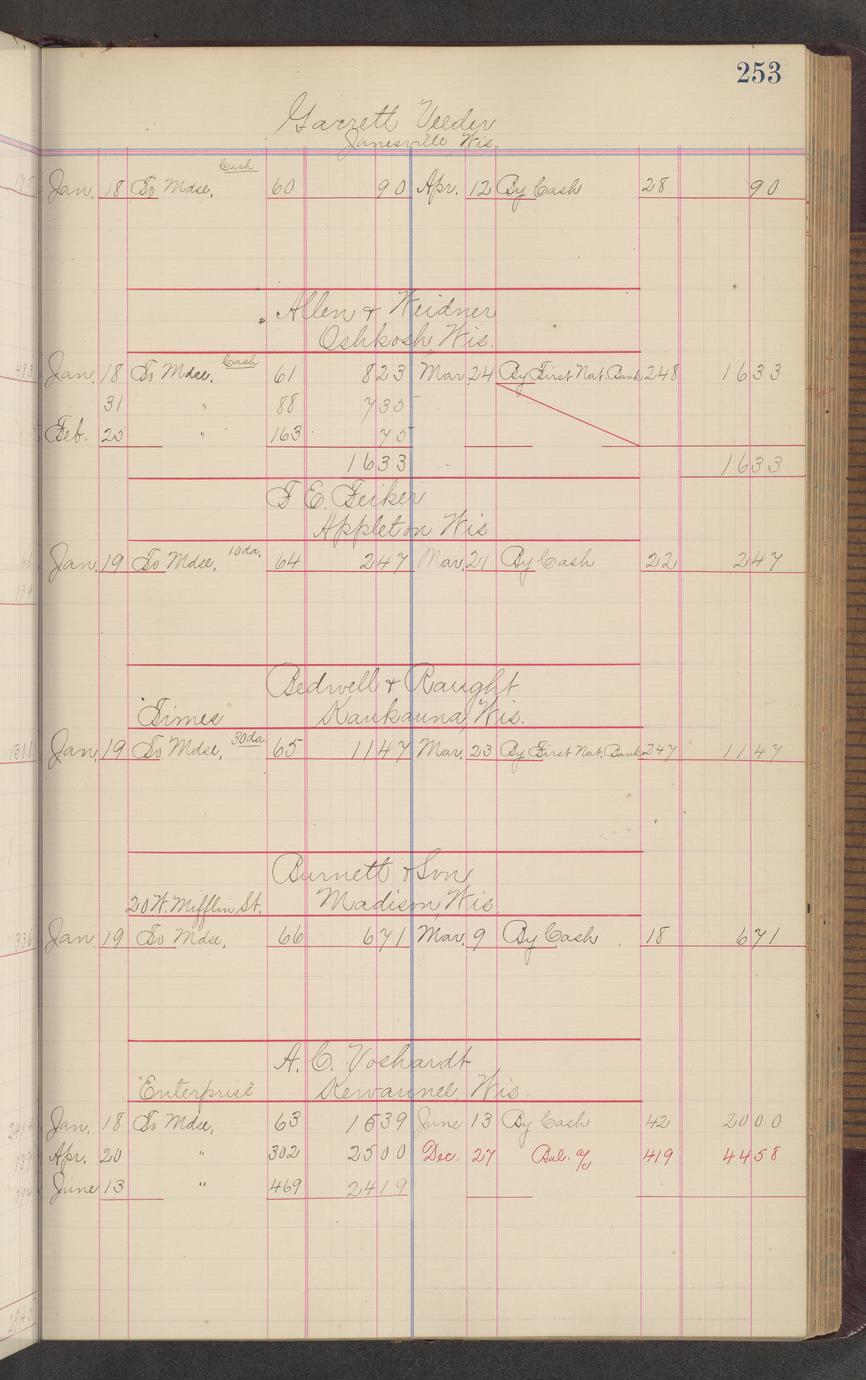 253
Garrett Veeder
Janesville Wis.
Cash
Jan. 18 To Mdse. 60 90 Apr. 12 By Cash 28 90
Allen & Weidner
Oshkosh, Wis.
Jan. 18 To Mdse. Cash 61 823 Mar. 24 By First Nat. Bank 248 1633
31 " 88 735
Feb. 25 " 163 75
1633 1633
F E. Feiker
Appleton Wis
Jan. 19 To Mdse. 10da. 64 247 Mar. 21 By Cash 22 247
Bedwell & Raught
"Times" Kaukauna, Wis.
Jan. 19 To Mdse. 30da 65 1147 Mar. 23 By First Nat. Bank 247 1147
Burnett & Son
20 W. Mifflin St. Madison, Wis.
Jan 19 To Mdse. 66 671 Mar. 9 By Cash 18 671
A. C. Voshardt
"Enterprise" Kewaunee, Wis.
Jan. 18 To Mdse. 63 1539 June 13 By Cash 42 2000
Apr. 20 " 302 2500 Dec. 27 Bal. a/c 419 4458
June 13 " 469 2419